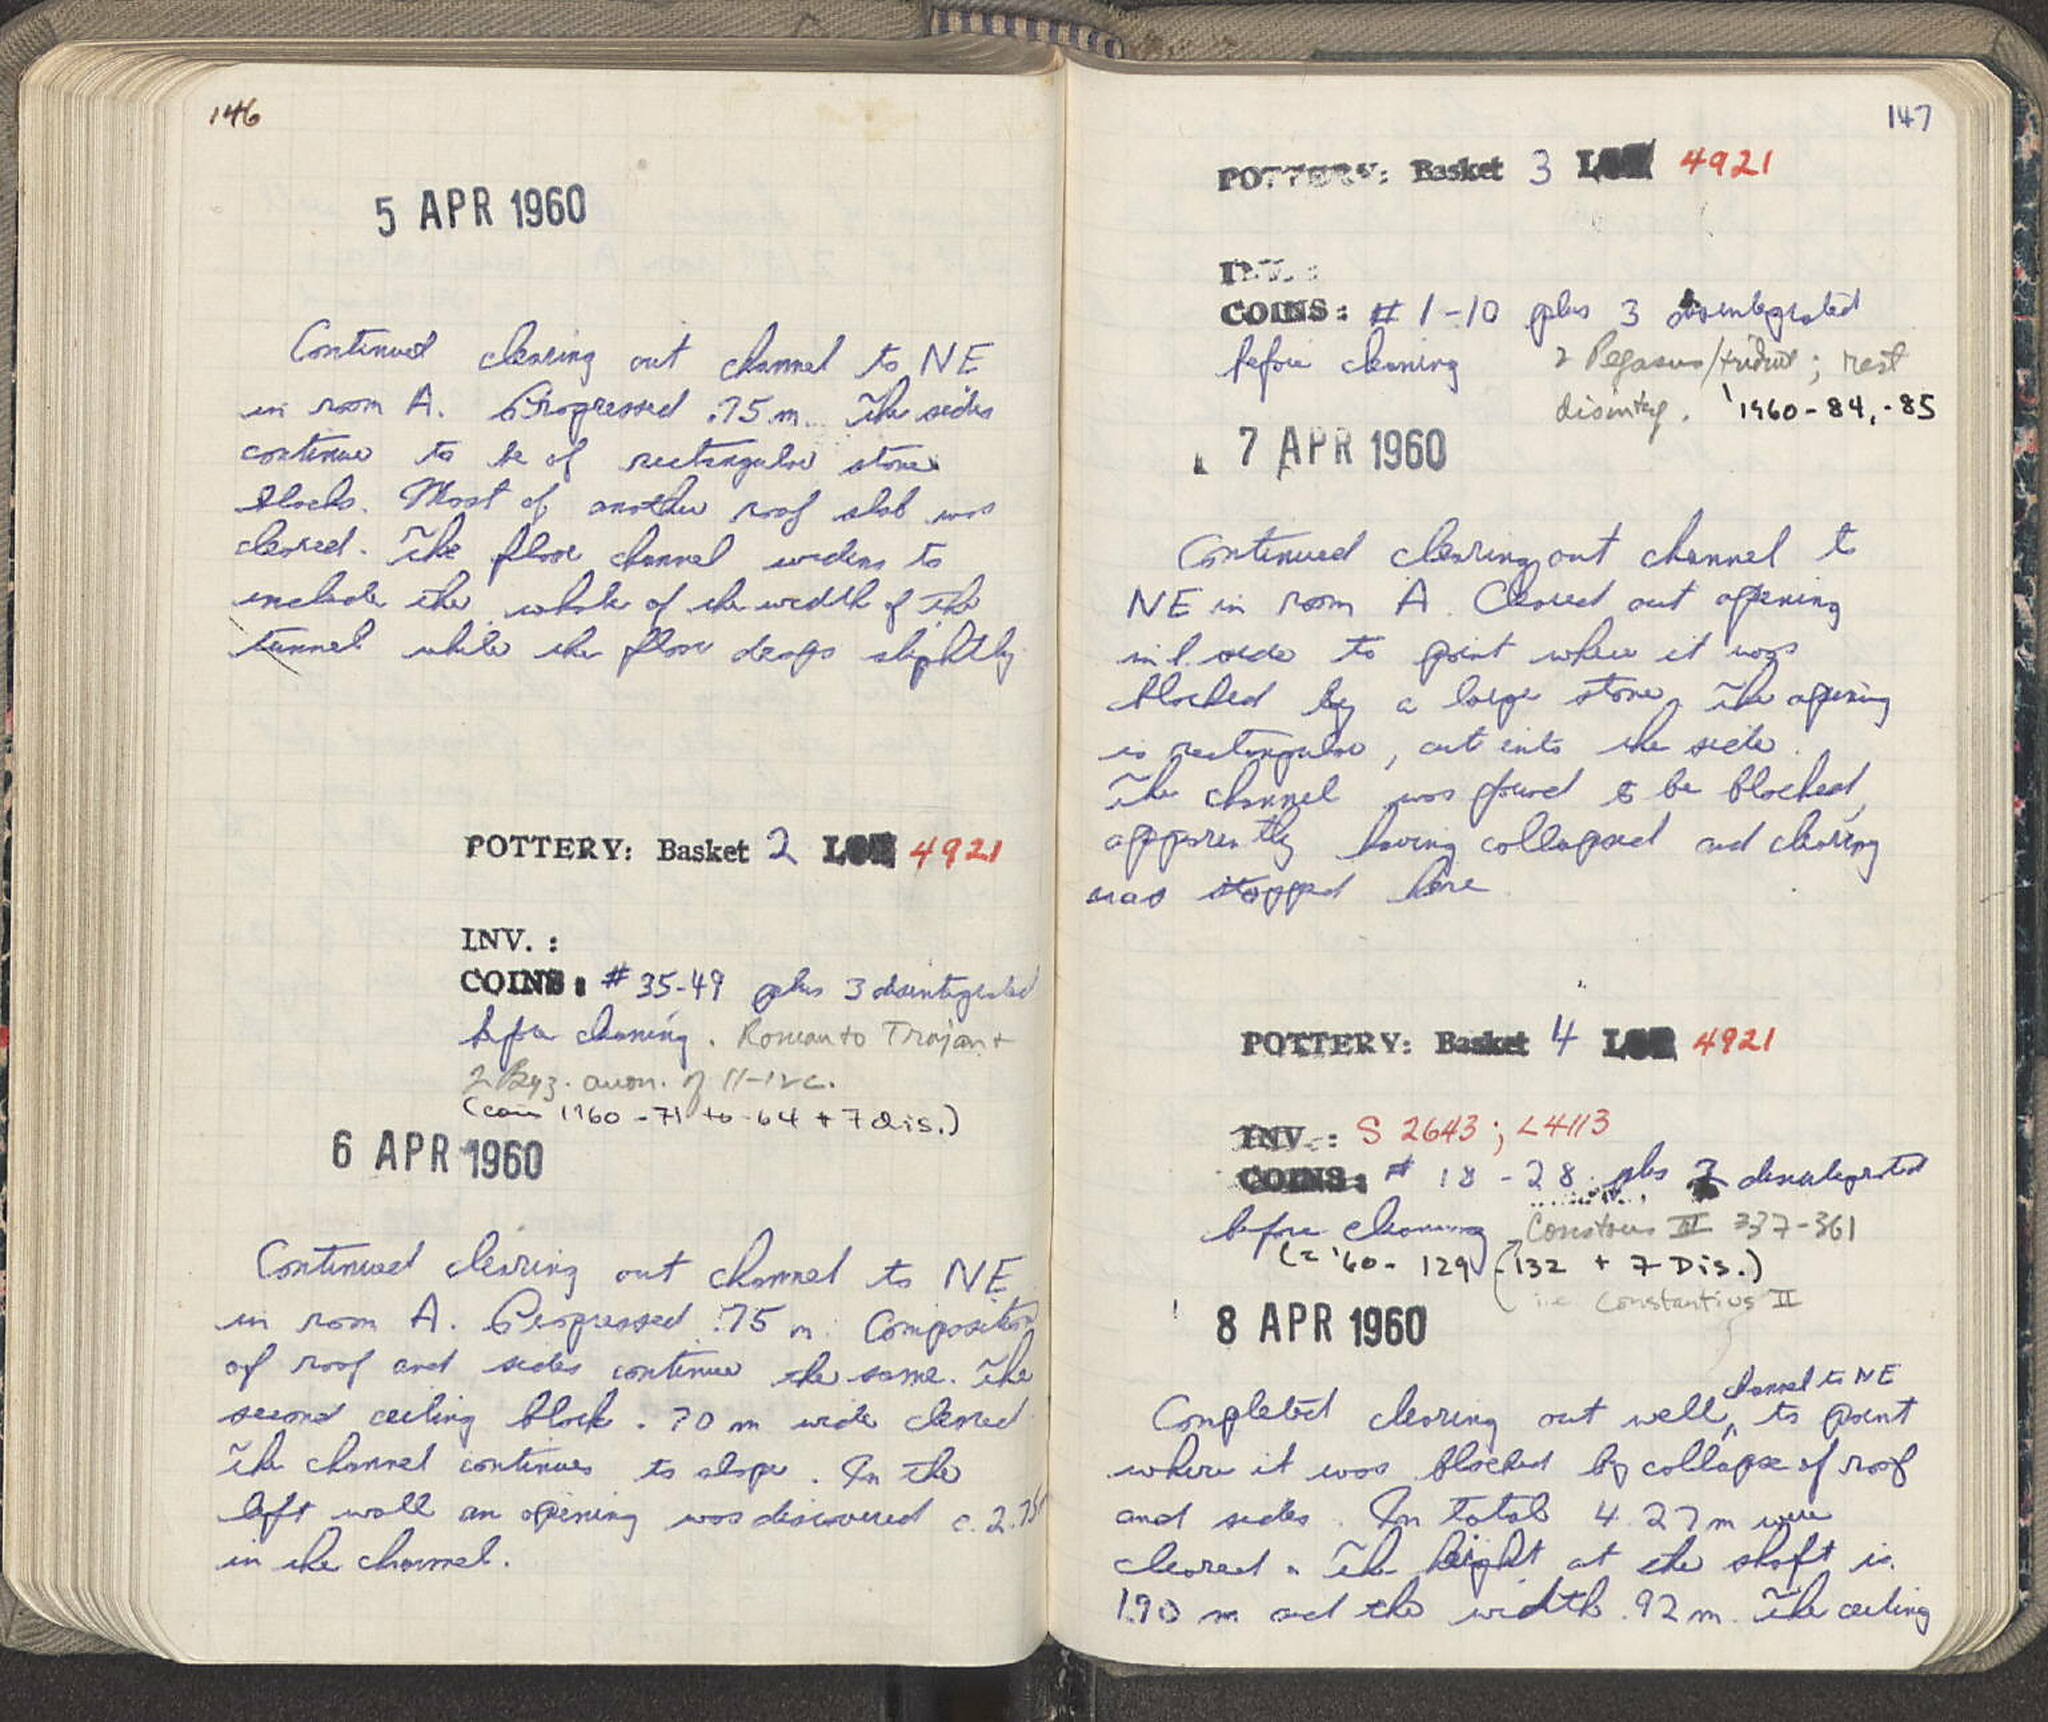 146
5 APR 1960
Continued clearing out channel to NE
in room A. Progressed .75 m. The sides
continue to be of rectangular stone
blocks. Most of another roof slab was
cleared. The floor channel widens to
include the whole of the width of the
tunnel while the floor drops slightly
POTTERY: Basket 2 LOT 4921
INV. :
COINS: # 35-49 plus 3 disintegrated
before cleaning. Roman to Trajan +
2 Byz. anon. of 11-12 c.
(coin 1960-71 to -64 + 7 dis.)
6 APR 1960
Continued clearing out channel to NE
in room A. Progressed .75 m. Composition
of roof and sides continue the same. The
second ceiling block .70 m wide cleared
The channel continues to slope. In the
left wall an opening was discovered c. 2.75
in the channel.
147
POTTERY: Basket 3 LOT 4921
INV. :
COINS: # 1-10 plus 3 disintegrated
before cleaning 2 Pegasus/trident; rest
disinteg. '1960-84,-85
7 APR 1960
Continued clearing out channel to
NE in room A. Cleared out opening
in l. side to point where it was
blocked by a large stone. The opening
is rectangular, cut into the side.
The channel was found to be blocked,
apparently having collapsed and clearing
was stopped here
POTTERY: Basket 4 LOT 4921
INV. : S 2643; L4113
COINS: # 18-28 plus disintegrated
before cleaning Constans II 337-361
(= '60-129-132 + 7 Dis.)
i.e. Constantius II
8 APR 1960
channel to NE
Completed clearing out well, to point
where it was blocked by collapse of roof
and sides. In total 4.27 m were
cleared. The height at the shaft is
1.90 m and the width .92 m. The ceiling